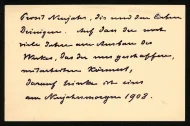 Prosit Neujahr, dir und den lieben
Deinigen. Auf daß du noch
viele Jahre am Ausbau des
Werkes, das du neu geschaffen,
mitarbeiten kannst,
darauf trinke ich eins
am Neujahrsmorgen 1908.